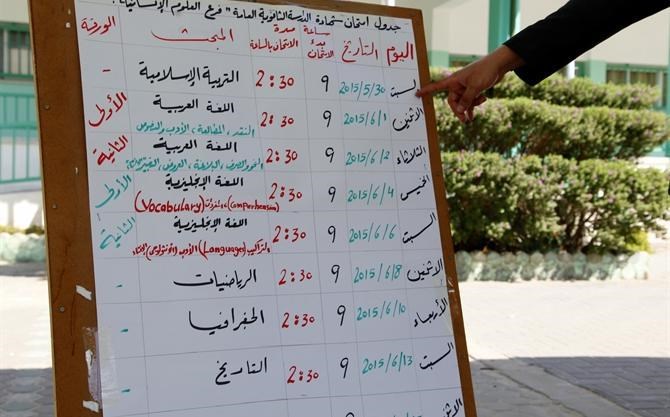 جدول امتحان شهادة الدراسة الثانوية العامة "فرع العلوم الإنسانية"
اليوم التاريخ ساعة بدء الامتحان مدة الامتحان بالساعة المبحث الورقة
السبت 2015/5/30 9 2:30 التربية الإسلامية -
الاثنين 2015/6/1 9 2:30 اللغة العربية الأولى
النقد، المطالعة، الأدب والنصوص
الثلاثاء 2015/6/2 9 2:30 اللغة العربية الثانية
النحو والصرف، البلاغة، العروض، التعبير
الخميس 2015/6/4 9 2:30 اللغة الإنجليزية الأولى
(Comprehension) (Vocabulary)
السبت 2015/6/6 9 2:30 اللغة الإنجليزية الثانية
التراكيب (Language) الأدب
الاثنين 2015/6/8 9 2:30 الرياضيات -
الأربعاء 2015/6/10 9 2:30 الجغرافيا -
السبت 2015/6/13 9 2:30 التاريخ -
9